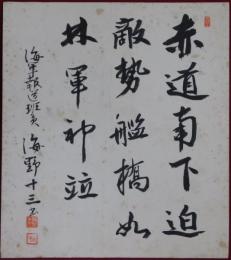 赤道南下迫
敵勢艦檣如
林軍神泣
海軍報道班員 海野十三